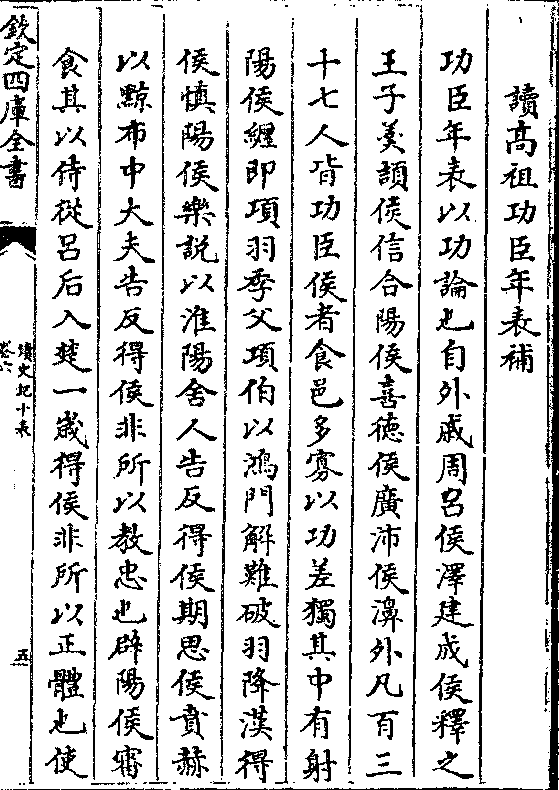 讀高祖功臣年表補
功臣年表以功論也自外戚周吕侯澤建成侯釋之
王子羮頡侯信合陽侯喜德侯廣沛侯濞外凡百三
十七人皆功臣侯者食邑多寡以功差獨其中有射
陽侯纏即項羽季父項伯以鴻門解難破羽降漢得
侯慎陽侯樂說以淮陽舍人告反得侯期思侯賁赫
以黥布中大夫告反得侯非所以教忠也辟陽侯審
食其以侍從呂后入楚一歲得侯非所以正體也使
欽定四庫全書
讀史記十表
卷六
五